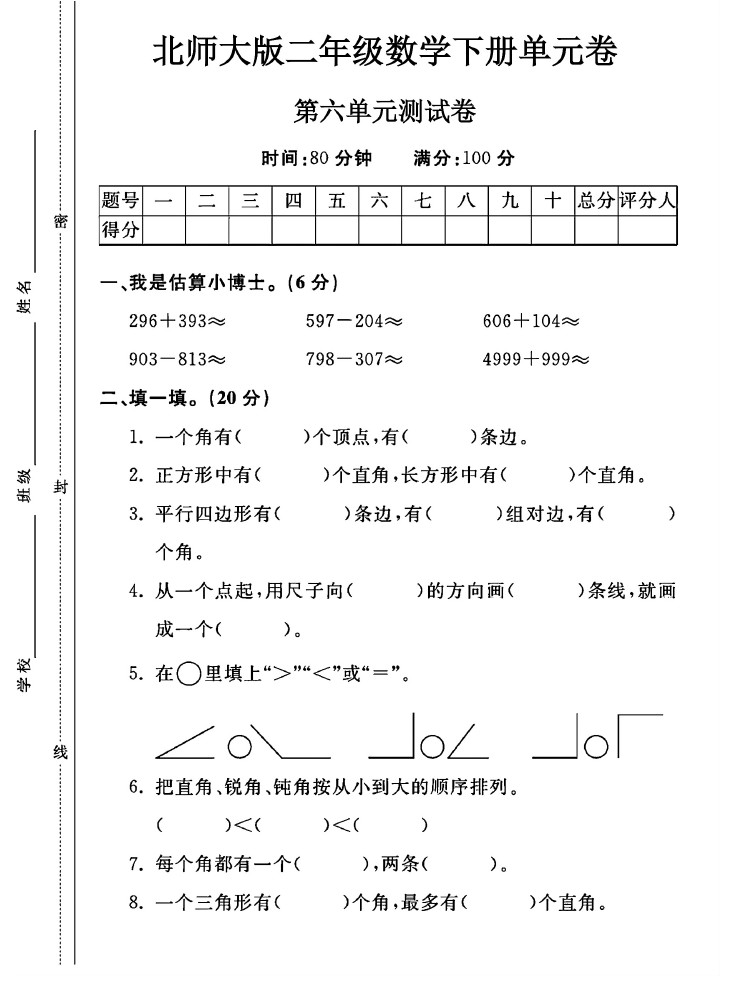 北师大版二年级数学下册单元卷
第六单元测试卷
时间:80 分钟 满分:100 分
题号 一 二 三 四 五 六 七 八 九 十 总分 评分人
得分
一、我是估算小博士。(6 分)
296+393≈ 597-204≈ 606+104≈
903-813≈ 798-307≈ 4999+999≈
二、填一填。(20 分)
1. 一个角有( )个顶点,有( )条边。
2. 正方形中有( )个直角,长方形中有( )个直角。
3. 平行四边形有( )条边,有( )组对边,有( )
个角。
4. 从一个点起,用尺子向( )的方向画( )条线,就画
成一个( )。
5. 在○里填上“>”“<”或“=”。
6. 把直角、锐角、钝角按从小到大的顺序排列。
( )<( )<( )
7. 每个角都有一个( ),两条( )。
8. 一个三角形有( )个角,最多有( )个直角。
密
封
线
姓名
班级
学校